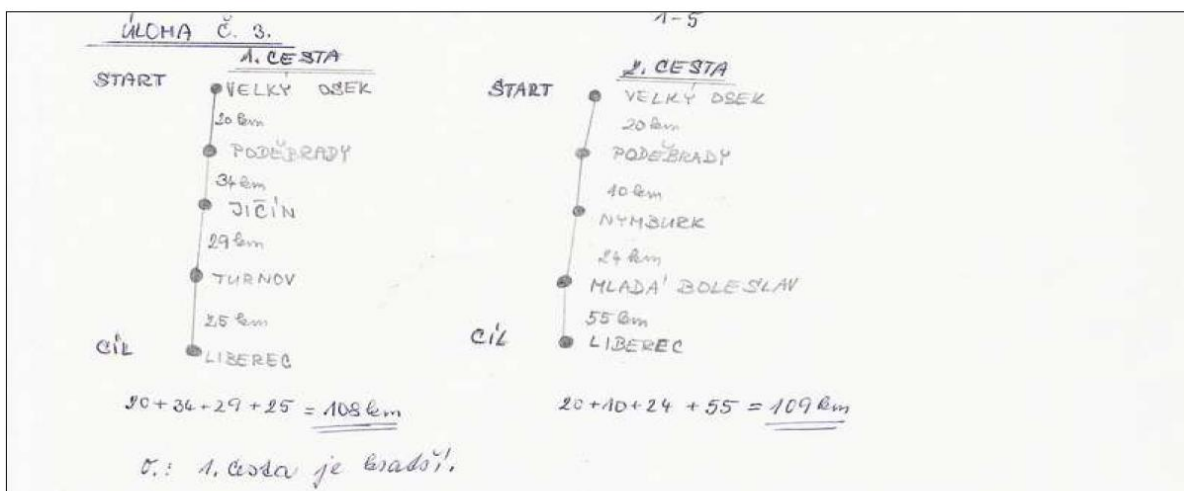 1-5
ÚLOHA Č. 3.
1. CESTA
START
VELKÝ OSEK
20 km
PODĚBRADY
34 km
JIČÍN
29 km
TURNOV
25 km
CÍL
LIBEREC
20+34+29+25 = 108 km
2. CESTA
START
VELKÝ OSEK
20 km
PODĚBRADY
10 km
NYMBURK
24 km
MLADÁ BOLESLAV
55 km
CÍL
LIBEREC
20+10+24+55 = 109 km
O.: 1. cesta je kratší.